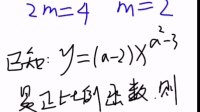 2m=4 m=2
已知: y=(a-2)x^{a²-3}
是正比例函数,则